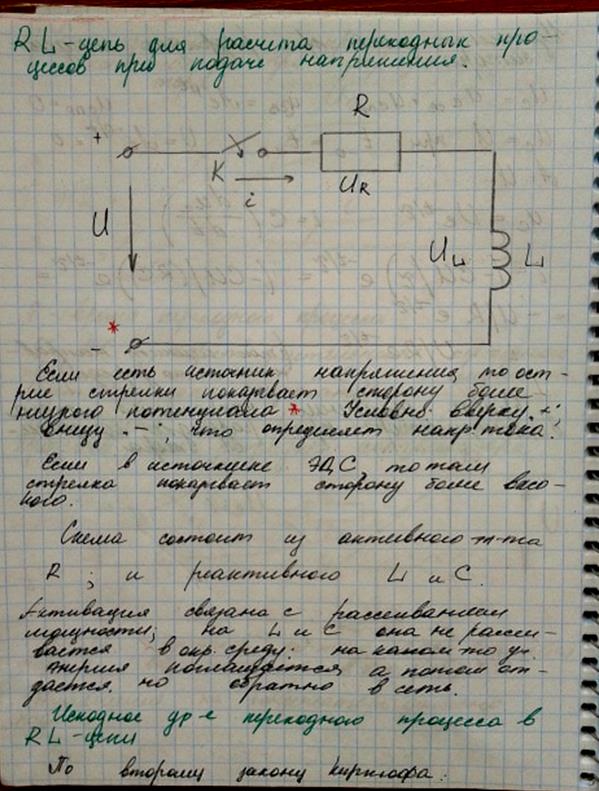 RL-цепь для расчета переходных про-
цессов при подаче напряжения.
R
+
K
i
U_R
U
U_L
L
*
-
Если есть источник напряжения то ост-
рие стрелки показывает сторону более
низкого потенциала * Условно: вверху „+“,
внизу „-“, что определяет напр тока.
Если в источнике ЭДС, то там
стрелка показывает сторону более высо-
кого.
Схема состоит из активного эл-та
R ; и реактивного L и C.
Активация связана с рассеиванием
мощности, на L и C она не рассеи-
вается в окр. среду: на каком то уч.
энергия поглащается, а потом от-
дается но обратно в сеть.
Исходное ур-е переходного процесса в
RL-цепи
По второму закону кирхгофа: